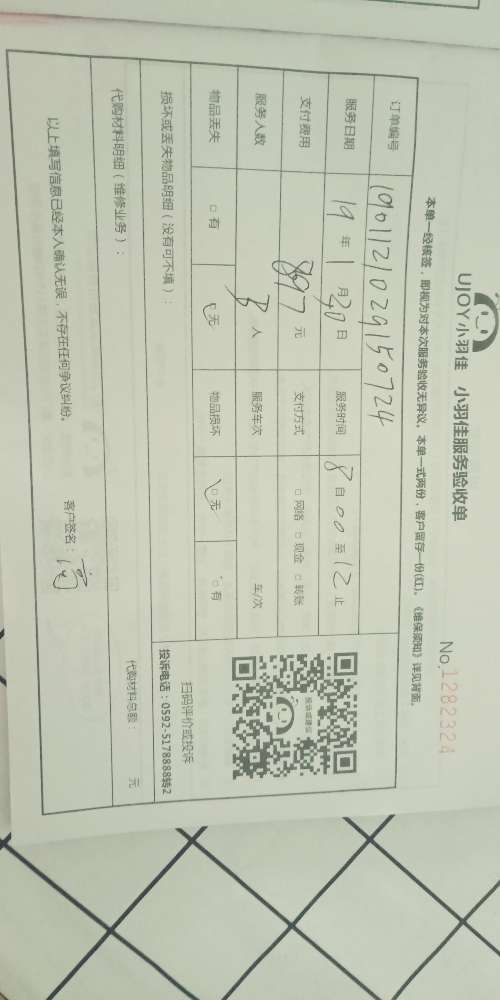 UJOY小羽佳 小羽佳服务验收单
No.1282324
本单一经核签，即视为对本次服务验收无异议。本单一式两份，客户留存一份(红)。《维保须知》详见背面。
订单编号 1901121029150724
服务日期 19 年 1 月 20 日 服务时间 8 自 00 至 12 止
支付费用 897 元 支付方式 □网络 □现金 □转账
服务人数 3 人 服务车次 车/次
物品丢失 □有 □无 物品损坏 □无 □有
扫码评价或投诉
投诉电话：0592-5178888转2
损坏或丢失物品明细（没有可不填）：
代购材料明细（维修业务）：
代购材料总额： 元
以上填写信息已经本人确认无误，不存在任何争议纠纷。
客户签名：